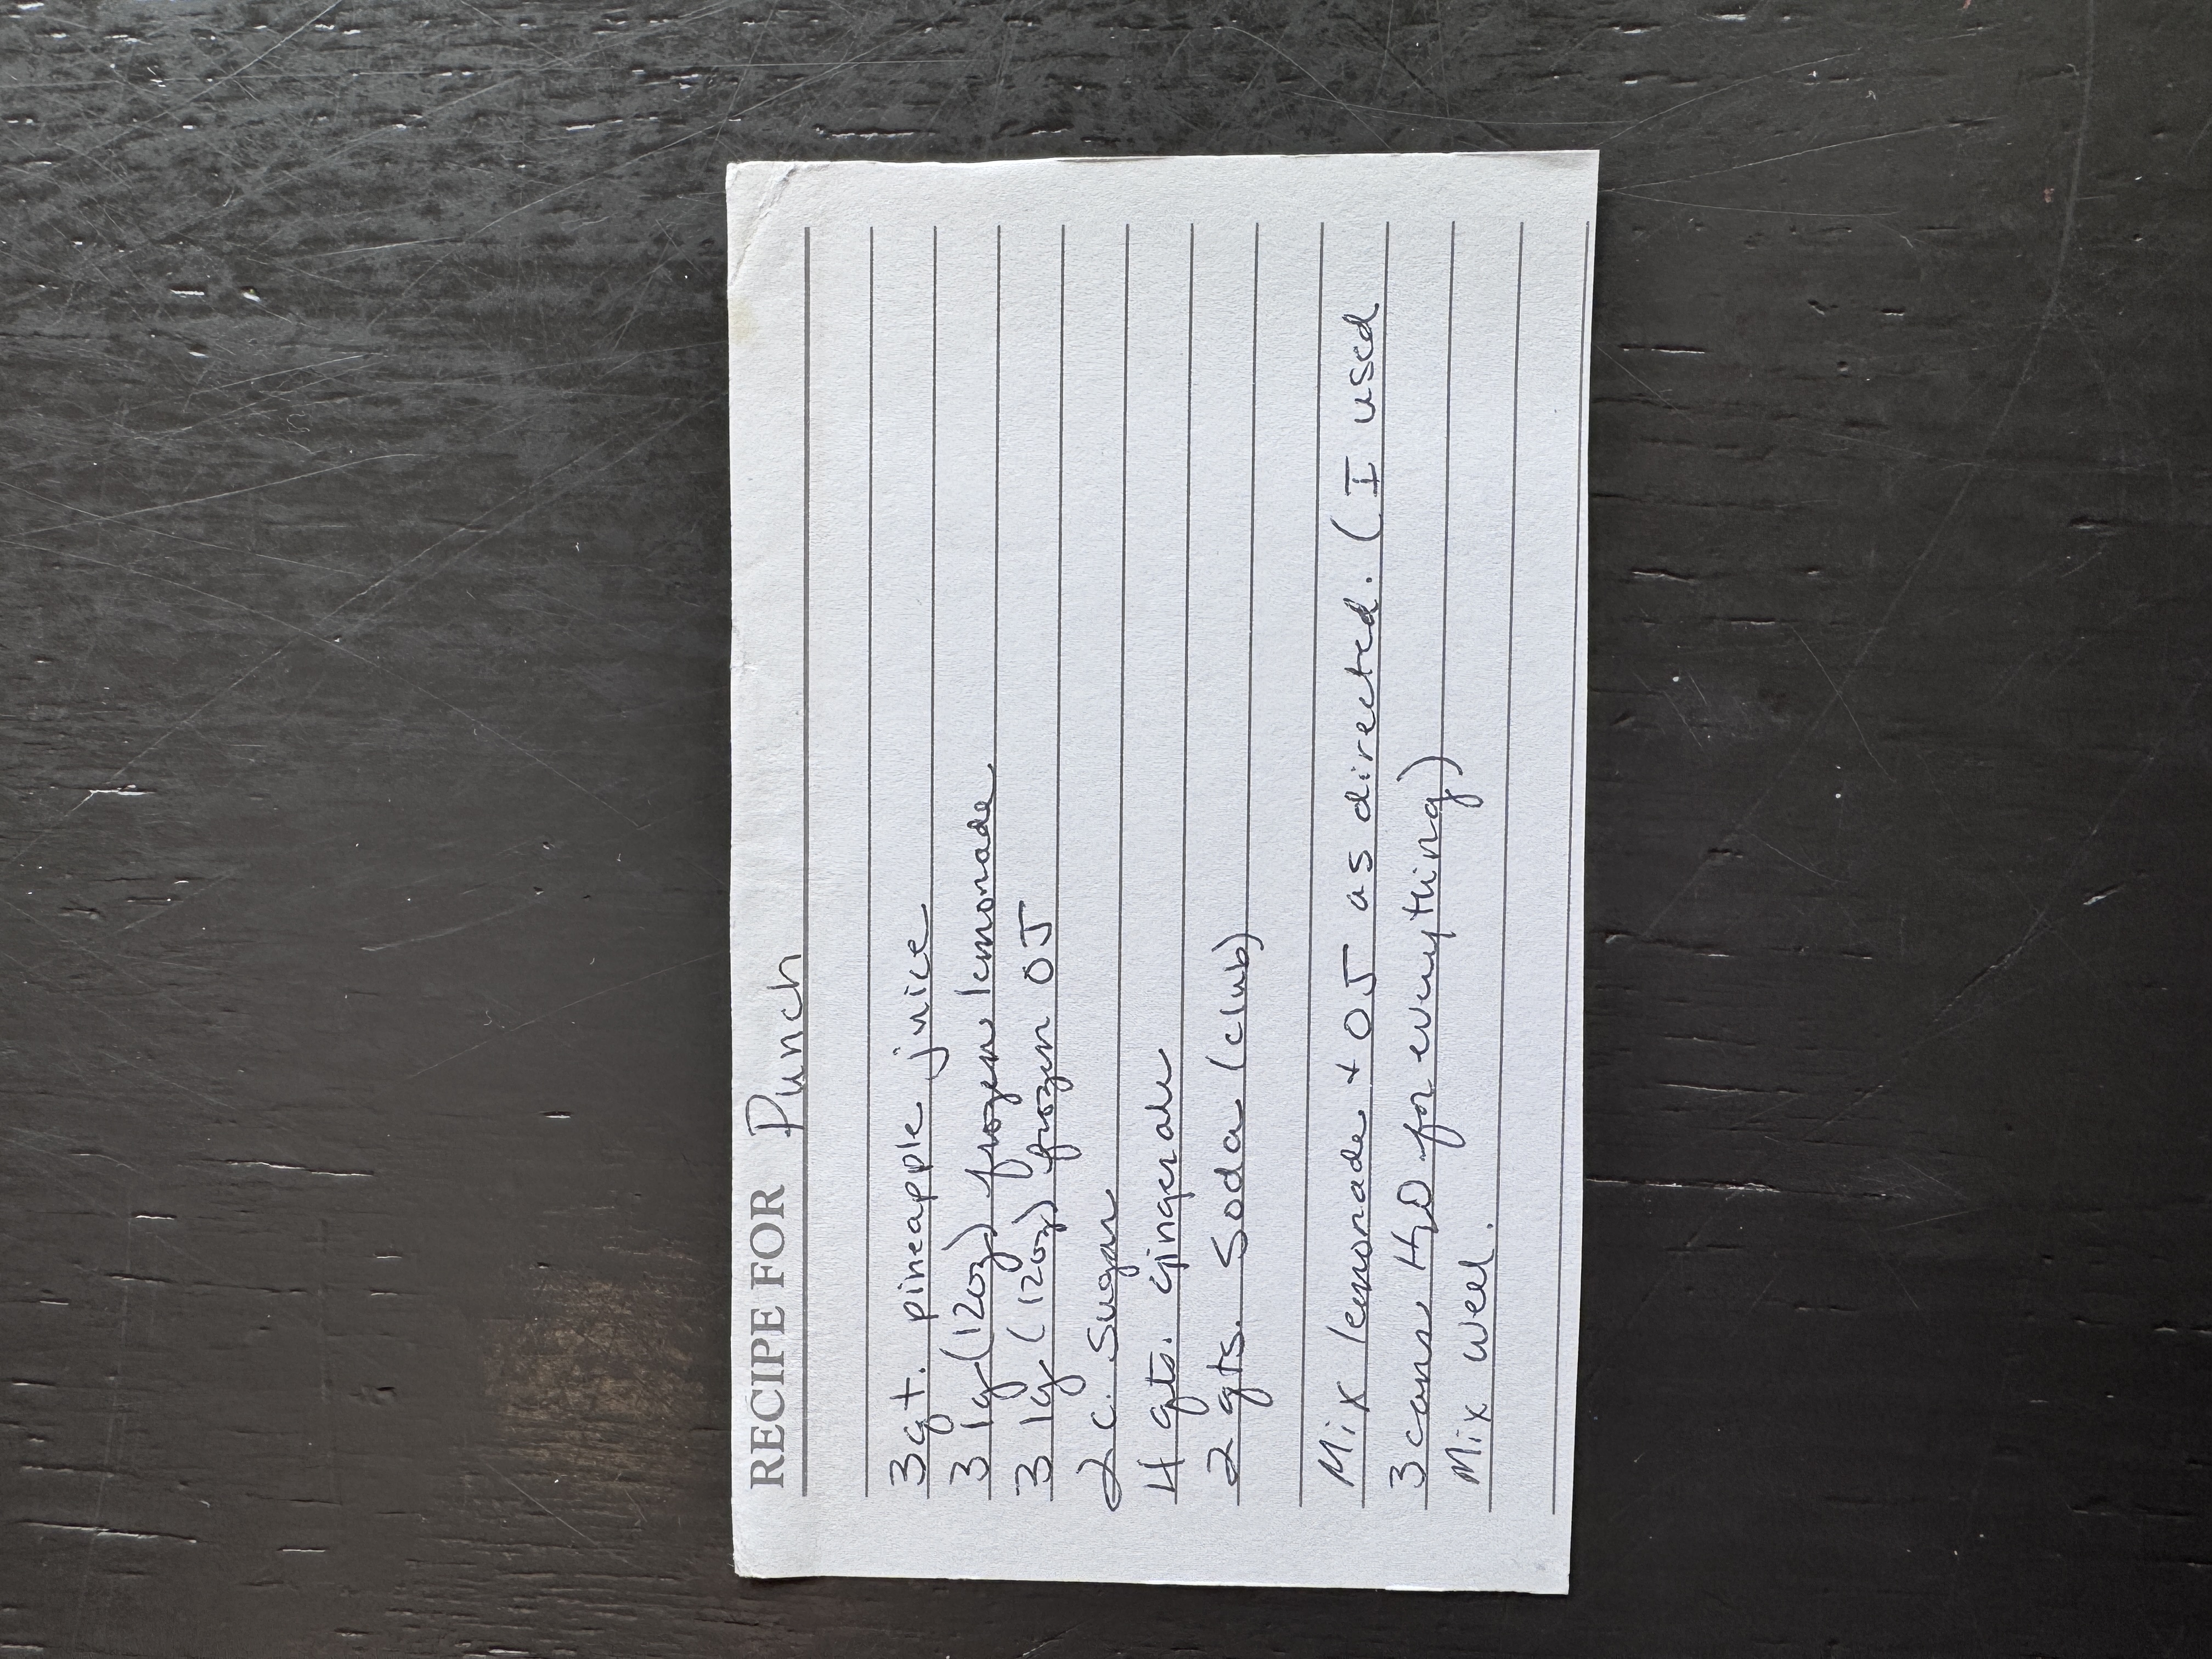 RECIPE FOR Punch
3 qt. pineapple juice
3 lg (12oz) frozen lemonade
3 lg (12oz) frozen OJ
2 c. Sugar
4 qts. gingerale
2 qts. Soda (club)
Mix lemonade + OJ as directed. (I used
3 cans H2O for everything)
Mix well.